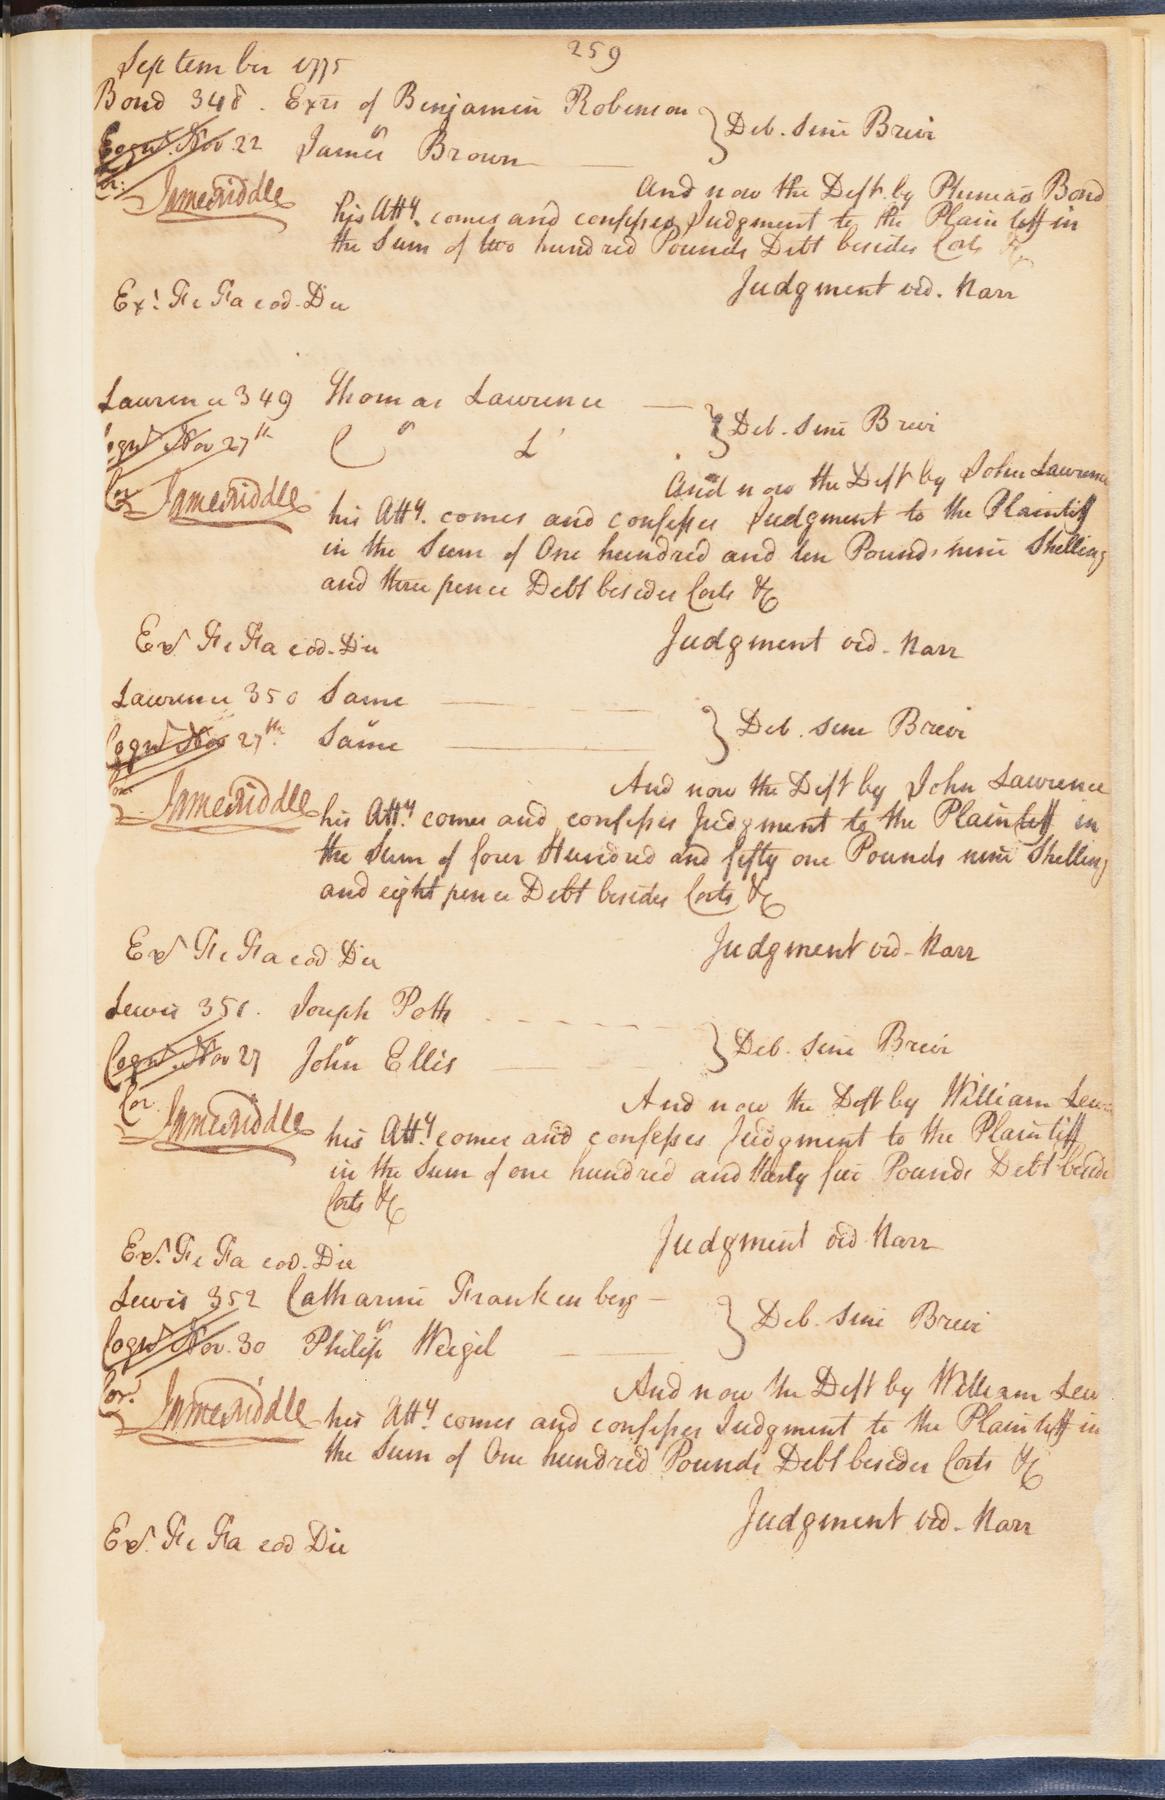 259
September 1775
Bond 348. Exrs of Benjamin Robinson } Deb. Sine Brevi
Cogn.t Nov. 22 James Brown
Cor: James Biddle And now the Deft. by Phineas Bond
his Atty. comes and confesses Judgment to the Plaintiff in
the Sum of two hundred Pounds Debt besides Costs &c
Judgment vid. Narr
Ex.t Fi Fa eod. Die
Lawrence 349 Thomas Lawrence } Deb. Sine Brevi
Cogn.t Nov 27th
Cor James Biddle And now the Deft by John Lawrence
his Atty. comes and confesses Judgment to the Plaintiff
in the Sum of One hundred and ten Pounds nine Shilling
and three pence Debt besides Costs &c
Ex.t Fi Fa eod. Die Judgment vid. Narr
Lawrence 350 Same } Deb. Sine Brevi
Cogn.t Nov 27th Same
Cor. James Biddle And now the Deft by John Lawrence
his Atty. comes and confesses Judgment to the Plaintiff in
the Sum of four Hundred and fifty one Pounds nine Shilling
and eight pence Debt besides Costs &c
Ex.t Fi Fa eod Die Judgment vid. Narr
Lewis 351. Joseph Potts } Deb. Sine Brevi
Cogn.t Nov 27 John Ellis
Cor. James Biddle And now the Deft by William Lewis
his Atty. comes and confesses Judgment to the Plaintiff
in the Sum of one hundred and thirty five Pounds Debt beside
Costs &c
Ex.t Fi Fa eod. Die Judgment vid Narr
Lewis 352 Catharine Frankenberg } Deb. Sine Brevi
Cogn.t Nov. 30 Philip Weigel
Cor. James Biddle And now the Deft by William Lew
his Atty. comes and confesses Judgment to the Plaintiff in
the Sum of One hundred Pounds Debt besides Costs &c
Judgment vid. Narr
Ex.t Fi Fa eod Die